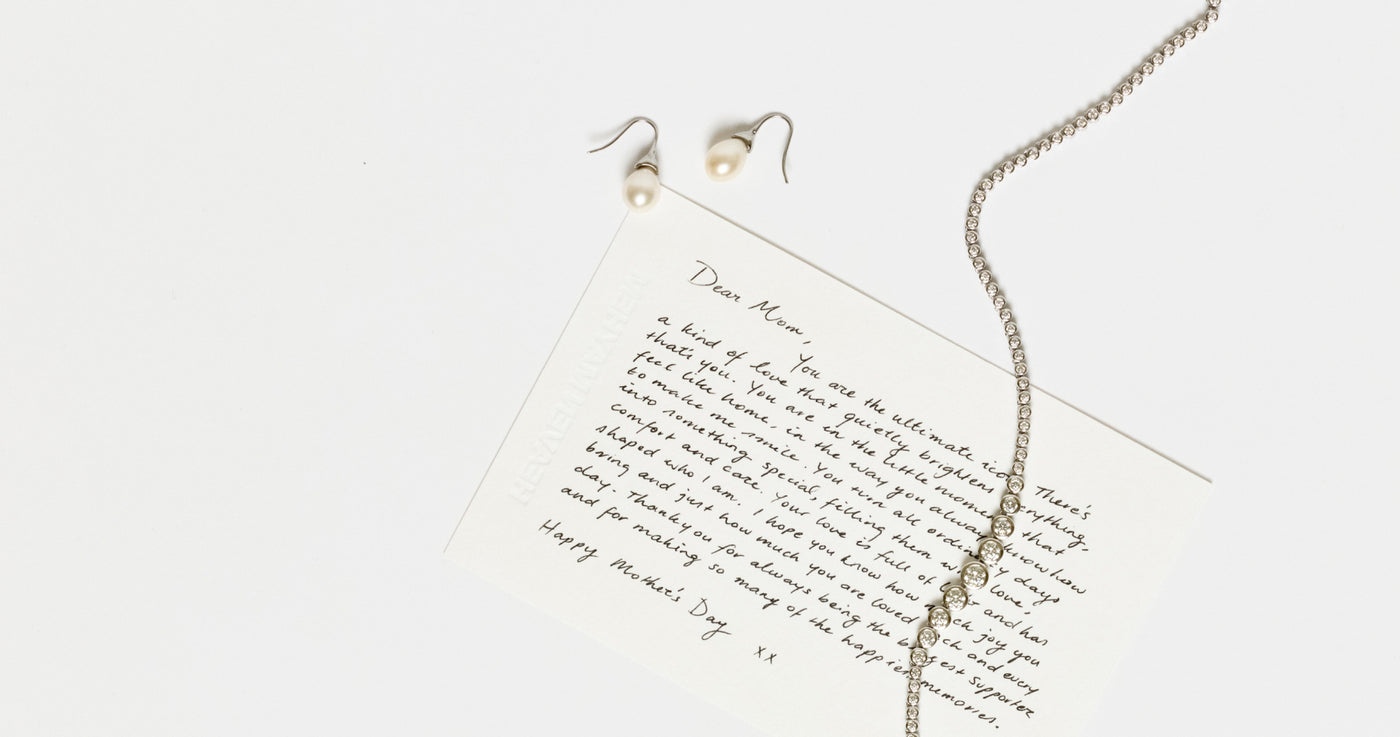 Dear Mom,
You are the ultimate icon. There's
a kind of love that quietly brightens everything,
that's you. You are in the little moments that
feel like home, in the way you always know how
to make me smile. You turn all ordinary days
into something special, filling them with love,
comfort and care. Your love is full of and has
shaped who I am. I hope you know how much joy you
bring and just how much you are loved each and every
day. Thank you for always being the biggest supporter
and for making so many of the happiest memories.
Happy Mother's Day xx
HEAVENMAYHEM